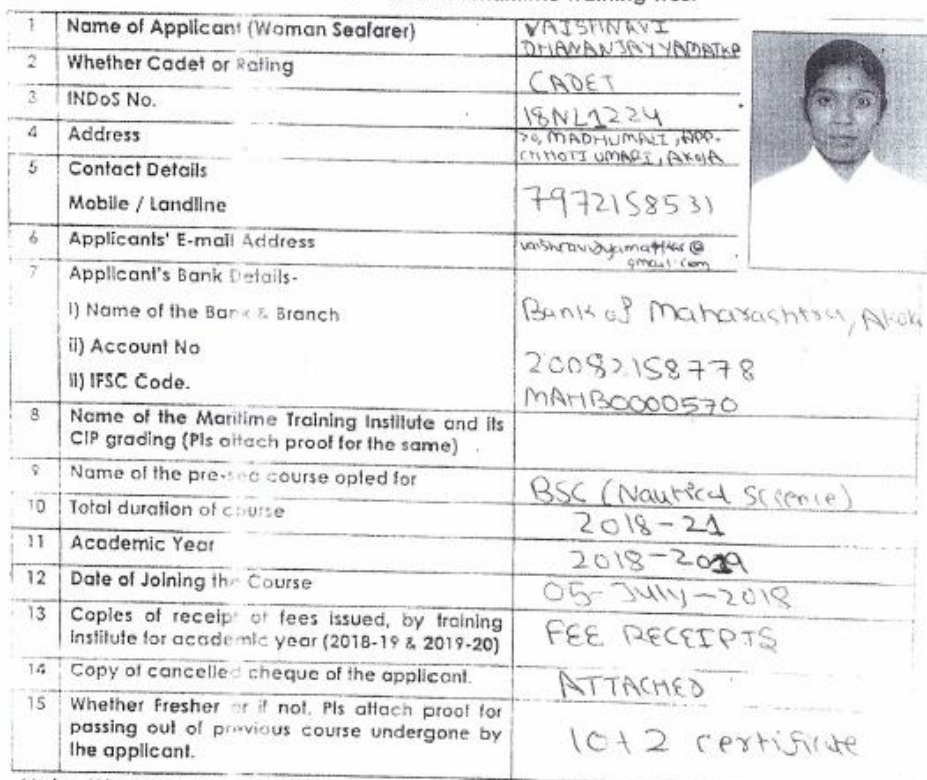 Maritime Training Trust
1 Name of Applicant (Woman Seafarer) VAISHNAVI
DHANANJAY YAMATKAR
2 Whether Cadet or Rating CADET
3 INDoS No. 18NL1224
4 Address MADHUMALI, APP.
CHHOTI UMARI, AKOLA
5 Contact Details
Mobile / Landline 7972158531
6 Applicants' E-mail Address
gmail.com
7 Applicant's Bank Details-
i) Name of the Bank & Branch Bank of Maharashtra, Akola
ii) Account No 20082158778
ii) IFSC Code. MAHB0000570
8 Name of the Maritime Training Institute and its
CIP grading (Pls attach proof for the same)
9 Name of the pre-sea course opted for BSC (Nautical Science)
10 Total duration of course 2018-21
11 Academic Year 2018-2019
12 Date of Joining the Course 05-July-2018
13 Copies of receipt of fees issued, by training
institute for academic year (2018-19 & 2019-20) FEE RECEIPTS
14 Copy of cancelled cheque of the applicant. ATTACHED
15 Whether Fresher or if not. Pls attach proof for
passing out of previous course undergone by
the applicant. 10+2 certificate